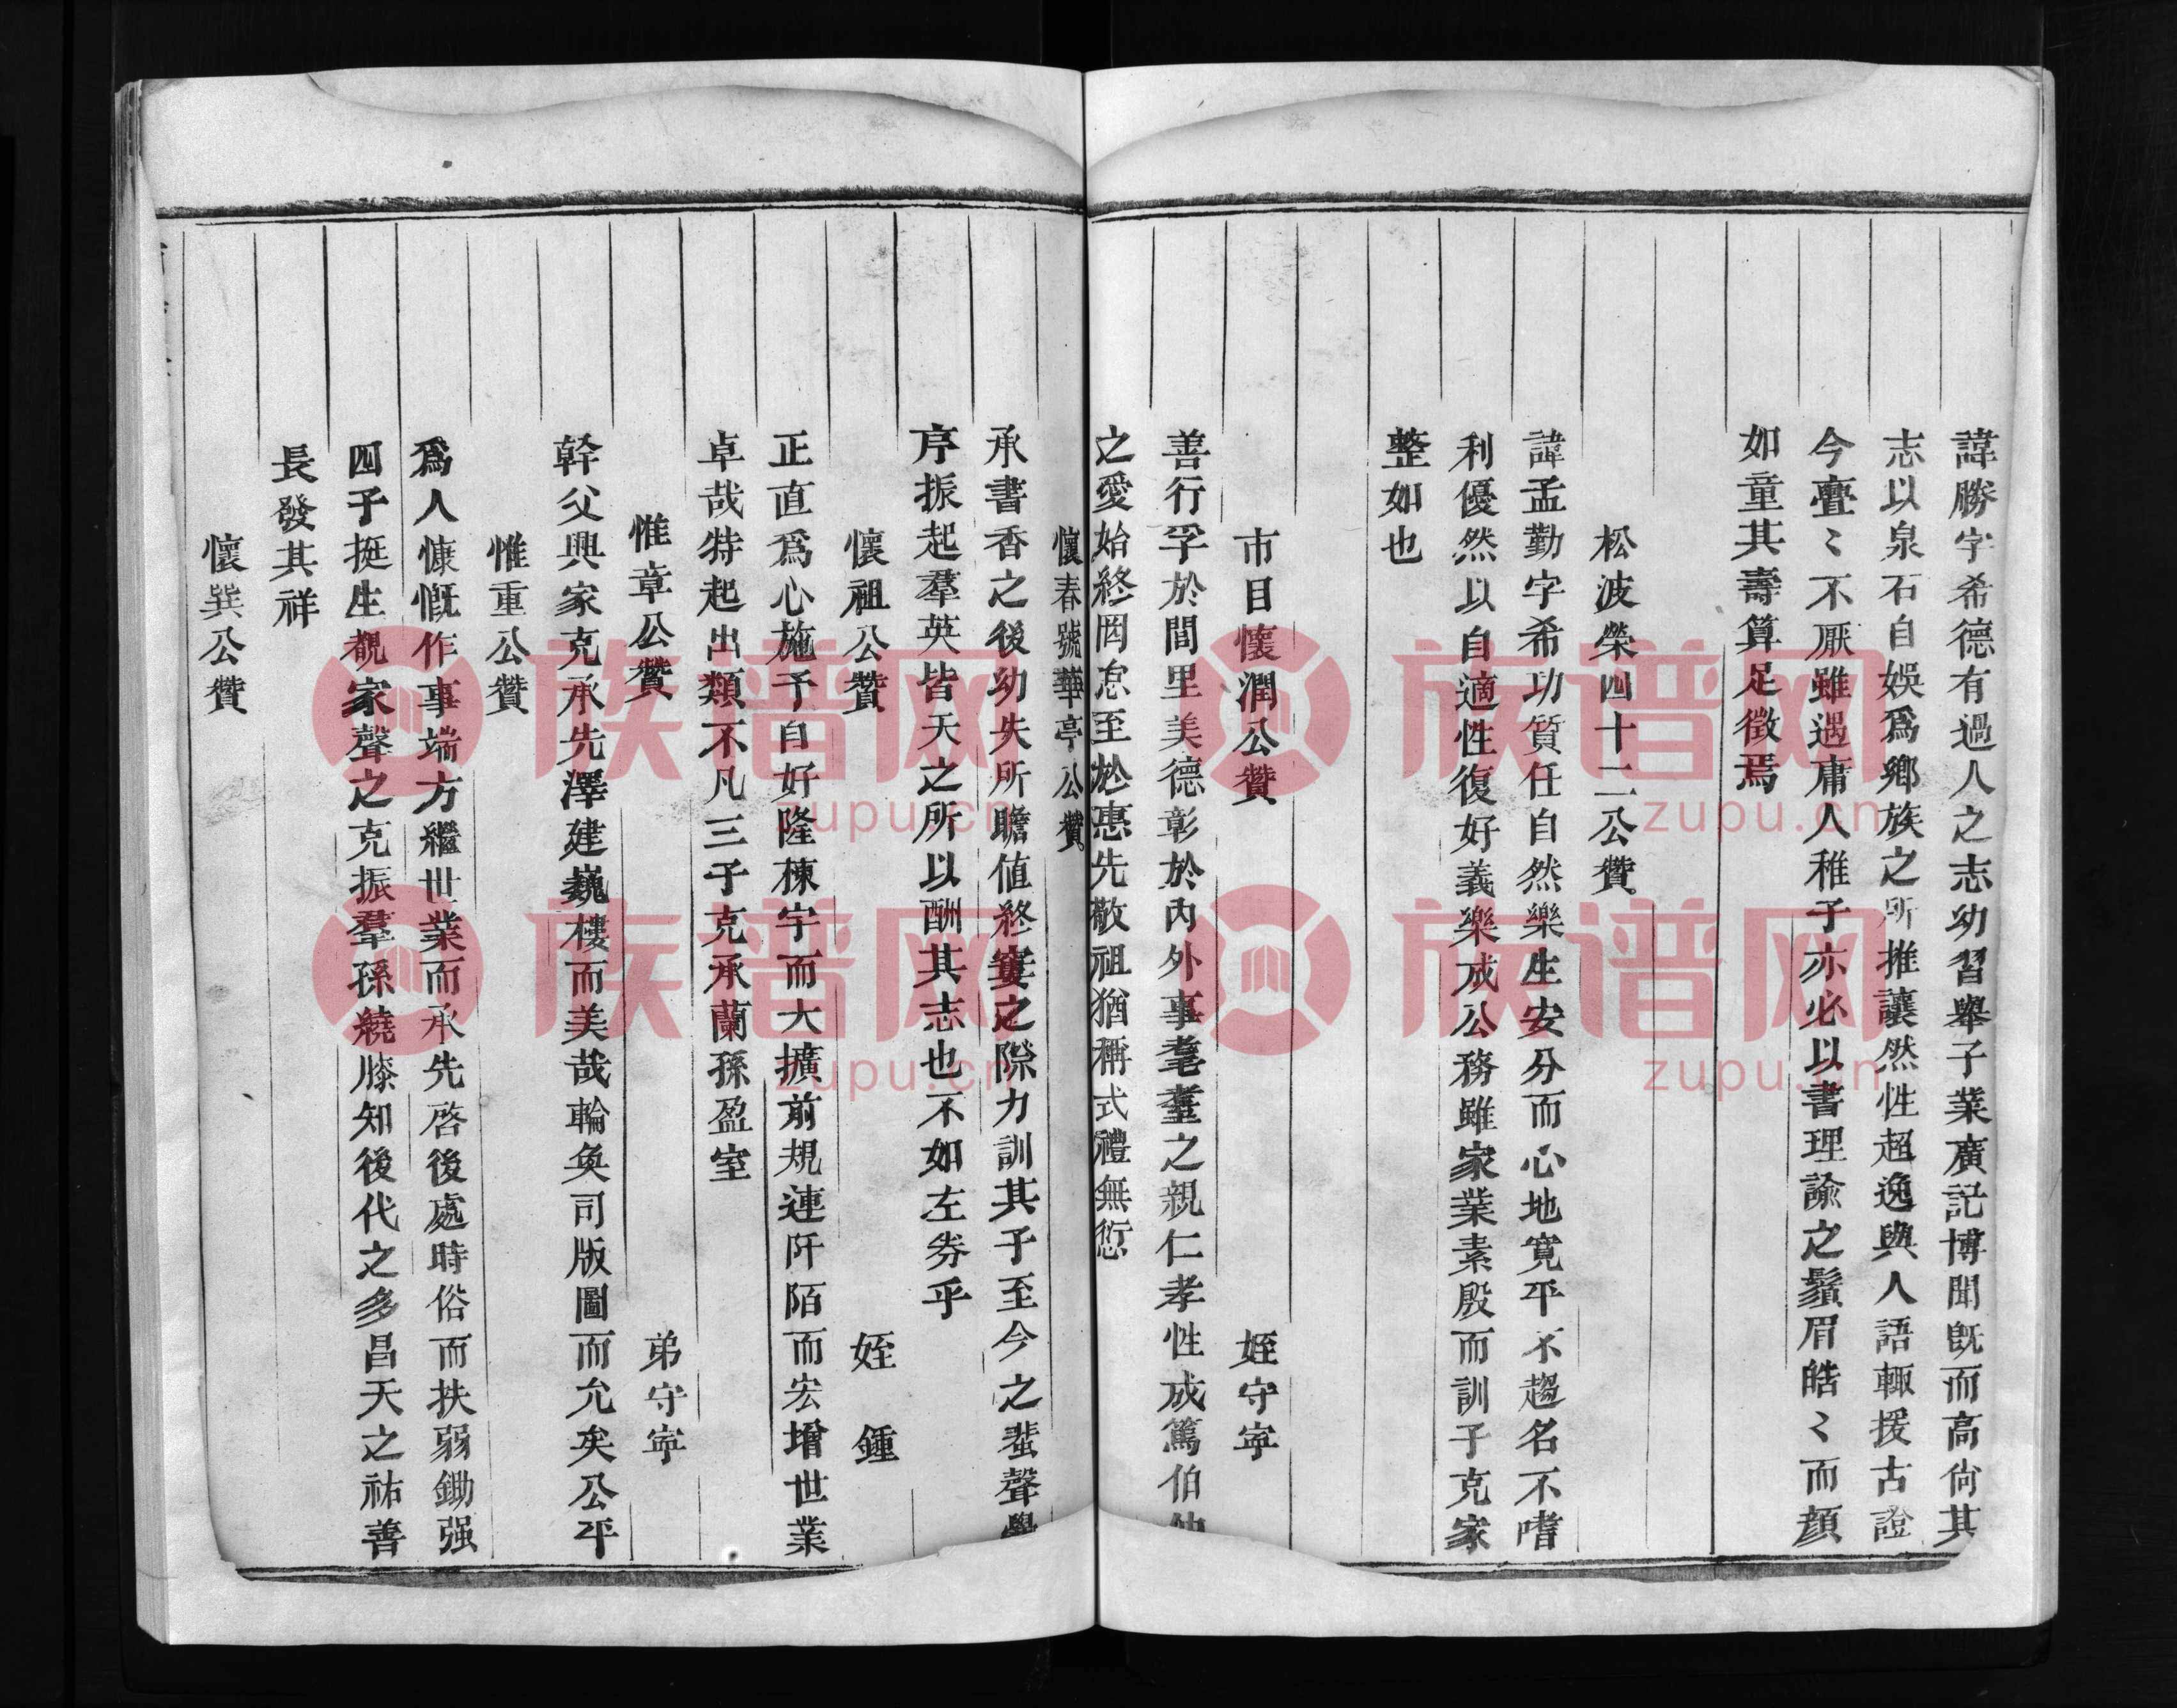 諱勝字希德有過人之志幼習舉子業廣記博聞旣而高尙其
志以泉石自娛爲鄉族之所推讓然性超逸與人語輒援古證
今亹〻不厭雖遇庸人稚子亦必以書理諭之鬚眉皓〻而顔
如童其壽算足徵焉
松波榮四十二公贊
諱孟勤字希功質任自然樂生安分而心地寬平不趨名不嗜
利優然以自適性復好義樂成公務雖家業素殷而訓子克家
整如也
市目懷潤公贊 姪守寧
善行孚於閭里美德彰於內外事耄耋之親仁孝性成篤伯仲
之愛始終罔怠至於惠先敬祖猶稱式禮無愆
懷春號華亭公贊
承書香之後幼失所瞻值終窶之際力訓其子至今之蜚聲黌
序振起羣英皆天之所以酬其志也不如左券乎
懷祖公贊 姪 鍾
正直爲心施予自好隆棟宇而大擴前規連阡陌而宏增世業
卓哉特起出類不凡三子克承蘭孫盈室
惟章公贊 弟守寧
幹父興家克承先澤建巍樓而美哉輪奐司版圖而允矣公平
惟重公贊
爲人慷慨作事端方繼世業而承先啓後處時俗而扶弱鋤强
四子挺生覩家聲之克振羣孫繞膝知後代之多昌天之祐善
長發其祥
懷巽公贊
族谱网
zupu.cn
族谱网
zupu.cn
族谱网
zupu.cn
族谱网
zupu.cn